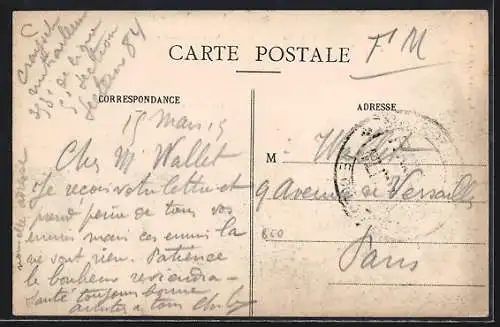 C Crayset
mitrailleur
de ligne
5e section
Secteur 84
nouvelle adresse
CARTE POSTALE
F M
CORRESPONDANCE
ADRESSE
15 Mars 15
Cher Mr Wallet
Je reçois votre lettre et
prend peine de tous vos
ennuis mais ces ennui la
ne sont rien. Patience
le bonheur reviendra –
Santé toujours bonne
amitiés a tous
M Wallet
9 Avenue de Versailles
Paris